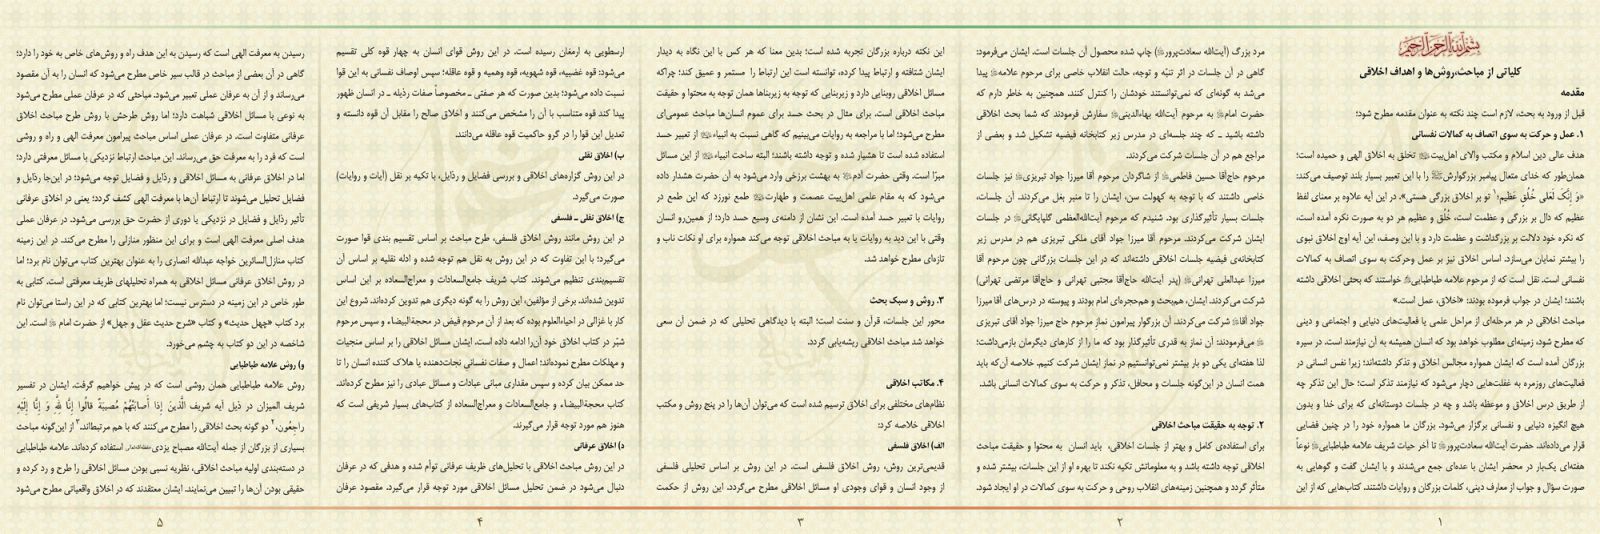 بسم الله الرحمن الرحیم
کلیاتی از مباحث،روش‌ها و اهداف اخلاقی
مقدمه
قبل از ورود به بحث، لازم است چند نکته به عنوان مقدمه مطرح شود؛
۱. عمل و حرکت به سوی اتصاف به کمالات نفسانی
هدف عالی دین اسلام و مکتب والای اهل‌بیت تخلق به اخلاق الهی و حمیده است؛
همان‌طور که خدای متعال پیامبر بزرگوارش را با این تعبیر بسیار بلند توصیف می‌کند:
«وَ إِنَّكَ لَعَلی خُلُقٍ عَظِیمٍ؛۱ تو بر اخلاق بزرگی هستی». در این آیه علاوه بر معنای لفظ
عظیم که دال بر بزرگی و عظمت است، خُلُق و عظیم هر دو به صورت نکره آمده است،
که نکره خود دلالت بر بزرگداشت و عظمت دارد و با این وصف، این آیه اوج اخلاق نبوی
را بیشتر نمایان می‌سازد. اساس اخلاق نیز بر عمل وحرکت به سوی اتصاف به کمالات
نفسانی است. نقل است که از مرحوم علامه طباطبایی خواستند که بحثی اخلاقی داشته
باشند؛ ایشان در جواب فرموده بودند: «اخلاق، عمل است.»
مباحث اخلاقی در هر مرحله‌ای از مراحل علمی یا فعالیت‌های دنیایی و اجتماعی و دینی
که مطرح شود، زمینه‌ای مطلوب خواهد بود که انسان همیشه به آن نیازمند است. در سیره
بزرگان آمده است که ایشان همواره مجالس اخلاق و تذکر داشته‌اند؛ زیرا نفس انسانی در
فعالیت‌های روزمره به غفلت‌هایی دچار می‌شود که نیازمند تذکر است؛ حال این تذکر چه
از طریق درس اخلاق و موعظه باشد و چه در جلسات دوستانه‌ای که برای خدا و بدون
هیچ انگیزه دنیایی و نفسانی برگزار می‌شود. بزرگان ما همواره خود را در چنین فضایی
قرار می‌داده‌اند. حضرت آیت‌الله سعادت‌پرور تا آخر حیات شریف علامه طباطبایی نوعاً
هفته‌ای یک‌بار در محضر ایشان با عده‌ای جمع می‌شدند و با ایشان گفت و گوهایی به
صورت سؤال و جواب از معارف دینی، کلمات بزرگان و روایات داشتند. کتاب‌هایی که از این
۱
مرد بزرگ (آیت‌الله سعادت‌پرور) چاپ شده محصول آن جلسات است. ایشان می‌فرمود:
گاهی در آن جلسات در اثر تنبّه و توجه، حالت انقلاب خاصی برای مرحوم علامه پیدا
می‌شد به گونه‌ای که نمی‌توانستند خودشان را کنترل کنند. همچنین به خاطر دارم که
حضرت امام به مرحوم آیت‌الله بهاءالدینی سفارش فرمودند که شما بحث اخلاقی
داشته باشید ـ که چند جلسه‌ای در مدرس زیر کتابخانه فیضیه تشکیل شد و بعضی از
مراجع هم در آن جلسات شرکت می‌کردند.
مرحوم حاج‌آقا حسین فاطمی از شاگردان مرحوم آقا میرزا جواد تبریزی نیز جلسات
خاصی داشتند که با توجه به کهولت سن، ایشان را تا منبر بغل می‌کردند. آن جلسات،
جلسات بسیار تأثیرگذاری بود. شنیدم که مرحوم آیت‌الله‌العظمی گلپایگانی در جلسات
ایشان شرکت می‌کردند. مرحوم آقا میرزا جواد آقای ملکی تبریزی هم در مدرس زیر
کتابخانه‌ی فیضیه جلسات اخلاقی داشته‌اند که در این جلسات بزرگانی چون مرحوم آقا
میرزا عبدالعلی تهرانی (پدر آیت‌الله حاج‌آقا مجتبی تهرانی و حاج‌آقا مرتضی تهرانی)
شرکت می‌کردند. ایشان، هم‌بحث و هم‌حجره‌ای امام بودند و پیوسته در درس‌های آقا میرزا
جواد آقا شرکت می‌کردند. آن بزرگوار پیرامون نمازِ مرحوم حاج میرزا جواد آقای تبریزی
می‌فرمودند؛ آن نماز به قدری تأثیرگذار بود که ما را از کارهای دیگرمان بازمی‌داشت؛
لذا هفته‌ای یکی دو بار بیشتر نمی‌توانستیم در نماز ایشان شرکت کنیم. خلاصه آن‌که باید
همت انسان در این‌گونه جلسات و محافل، تذکر و حرکت به سوی کمالات انسانی باشد.
۲. توجه به حقیقت مباحث اخلاقی
برای استفاده‌ی کامل و بهتر از جلسات اخلاقی، باید انسان به محتوا و حقیقت مباحث
اخلاقی توجه داشته باشد و به معلوماتش تکیه نکند تا بهره او از این جلسات، بیشتر شده و
متأثر گردد و همچنین زمینه‌های انقلاب روحی و حرکت به سوی کمالات در او ایجاد شود.
۲
این نکته درباره بزرگان تجربه شده است؛ بدین معنا که هر کس با این نگاه به دیدار
ایشان شتافته و ارتباط پیدا کرده، توانسته است این ارتباط را مستمر و عمیق کند؛ چراکه
مسائل اخلاقی روبنایی دارد و زیربنایی که توجه به زیربناها همان توجه به محتوا و حقیقت
مباحث اخلاقی است. برای مثال در بحث حسد برای عموم انسان‌ها مباحث عمومی‌ای
مطرح می‌شود؛ اما با مراجعه به روایات می‌بینیم که گاهی نسبت به انبیاء از تعبیر حسد
استفاده شده است تا هشیار شده و توجه داشته باشند؛ البته ساحت انبیاء از این مسائل
مبرّا است. وقتی حضرت آدم به بهشت برزخی وارد می‌شود به آن حضرت هشدار داده
می‌شود که به مقام علمی اهل‌بیت عصمت و طهارت طمع نورزد که این طمع در
روایات با تعبیر حسد آمده است. این نشان از دامنه‌ی وسیع حسد دارد؛ از همین‌رو انسان
وقتی با این دید به روایات یا به مباحث اخلاقی توجه می‌کند همواره برای او نکات ناب و
تازه‌ای مطرح خواهد شد.
۳. روش و سبک بحث
محور این جلسات، قرآن و سنت است؛ البته با دیدگاهی تحلیلی که در ضمن آن سعی
خواهد شد مباحث اخلاقی ریشه‌یابی گردد.
۴. مکاتب اخلاقی
نظام‌های مختلفی برای اخلاق ترسیم شده است که می‌توان آن‌ها را در پنج روش و مکتب
اخلاقی خلاصه کرد:
الف) اخلاق فلسفی
قدیمی‌ترین روش، روش اخلاق فلسفی است. در این روش بر اساس تحلیلی فلسفی
از وجود انسان و قوای وجودی او مسائل اخلاقی مطرح می‌گردد. این روش از حکمت
۳
ارسطویی به ارمغان رسیده است. در این روش قوای انسان به چهار قوه کلی تقسیم
می‌شود: قوه غضبیه، قوه شهویه، قوه وهمیه و قوه عاقله؛ سپس اوصاف نفسانی به این قوا
نسبت داده می‌شود؛ بدین صورت که هر صفتی ـ مخصوصاً صفات رذیله ـ در انسان ظهور
پیدا کند قوه متناسب با آن را مشخص می‌کنند و اخلاق صالح را مقابل آن قوه دانسته و
تعدیل این قوا را در گرو حاکمیت قوه عاقله می‌دانند.
ب) اخلاق نقلی
در این روش گزاره‌های اخلاقی و بررسی فضایل و رذایل، با تکیه بر نقل (آیات و روایات)
صورت می‌گیرد.
ج) اخلاق نقلی ـ فلسفی
در این روش مانند روش اخلاق فلسفی، طرح مباحث بر اساس تقسیم بندی قوا صورت
می‌گیرد؛ با این تفاوت که در این روش به نقل هم توجه شده و ادله نقلیه بر اساس آن
تقسیم‌بندی تنظیم می‌شوند. کتاب شریف جامع‌السعادات و معراج‌السعاده بر این اساس
تدوین شده‌اند. برخی از مؤلفین، این روش را به گونه دیگری هم تدوین کرده‌اند. شروع این
کار با غزالی در احیاءالعلوم بوده که بعد از آن مرحوم فیض در محجةالبیضاء و سپس مرحوم
شبّر در کتاب اخلاق خود آن‌را ادامه داده است. ایشان مسائل اخلاقی را بر اساس منجیات
و مهلکات مطرح نموده‌اند؛ اعمال و صفات نفسانیِ نجات‌دهنده یا هلاک کننده انسان را تا
حد ممکن بیان کرده و سپس مقداری مبانی عبادات و مسائل عبادی را نیز مطرح کرده‌اند.
کتاب محجةالبیضاء و جامع‌السعادات و معراج‌السعاده از کتاب‌های بسیار شریفی است که
هنوز هم مورد توجه قرار می‌گیرند.
د) اخلاق عرفانی
در این روش مباحث اخلاقی با تحلیل‌های ظریف عرفانی توأم شده و هدفی که در عرفان
دنبال می‌شود در ضمن تحلیل مسائل اخلاقی مورد توجه قرار می‌گیرد. مقصود عرفان
۴
رسیدن به معرفت الهی است که رسیدن به این هدف راه و روش‌های خاص به خود را دارد؛
گاهی در آن بعضی از مباحث در قالب سیر خاص مطرح می‌شود که انسان را به آن مقصود
می‌رساند و از آن به عرفان عملی تعبیر می‌شود. مباحثی که در عرفان عملی مطرح می‌شود
به نوعی با مسائل اخلاقی شباهت دارد؛ اما روش طرحش با روش طرح مباحث اخلاق
عرفانی متفاوت است. در عرفان عملی اساس مباحث پیرامون معرفت الهی و راه و روشی
است که فرد را به معرفت حق می‌رساند. این مباحث ارتباط نزدیکی با مسائل معرفتی دارد؛
اما در اخلاق عرفانی به مسائل اخلاقی و رذایل و فضایل توجه می‌شود؛ در این‌جا رذایل و
فضایل تحلیل می‌شوند تا ارتباط آن‌ها با معرفت الهی کشف گردد؛ یعنی در اخلاق عرفانی
تأثیر رذایل و فضایل در نزدیکی یا دوری از حضرت حق بررسی می‌شود. در عرفان عملی
هدف اصلی معرفت الهی است و برای این منظور منازلی را مطرح می‌کند. در این زمینه
کتاب منازل‌السائرین خواجه عبدالله انصاری را به عنوان بهترین کتاب می‌توان نام برد؛ اما
در روش اخلاق عرفانی مسائل اخلاقی به همراه تحلیلهای ظریف معرفتی است. کتابی به
طور خاص در این زمینه در دسترس نیست؛ اما بهترین کتابی که در این راستا می‌توان نام
برد کتاب «چهل حدیث» و کتاب «شرح حدیث عقل و جهل» از حضرت امام است. این
شاخصه در این دو کتاب به چشم می‌خورد.
و) روش علامه طباطبایی
روش علامه طباطبایی همان روشی است که در پیش خواهیم گرفت. ایشان در تفسیر
شریف المیزان در ذیل آیه شریف الَّذینَ إِذا أَصابَتْهُمْ مُصیبَةٌ قالُوا إِنَّا لِلَّهِ وَ إِنَّا إِلَیْهِ
راجِعُون،۲ دو گونه بحث اخلاقی را مطرح می‌کنند که با هم مرتبط‌اند.۳ از این‌گونه مباحث
بسیاری از بزرگان از جمله آیت‌الله مصباح یزدی استفاده کرده‌اند. علامه طباطبایی
در دسته‌بندی اولیه مباحث اخلاقی، نظریه نسبی بودن مسائل اخلاقی را طرح و رد کرده و
حقیقی بودن آن‌ها را تبیین می‌نمایند. ایشان معتقدند که در اخلاق واقعیاتی مطرح می‌شود
۵